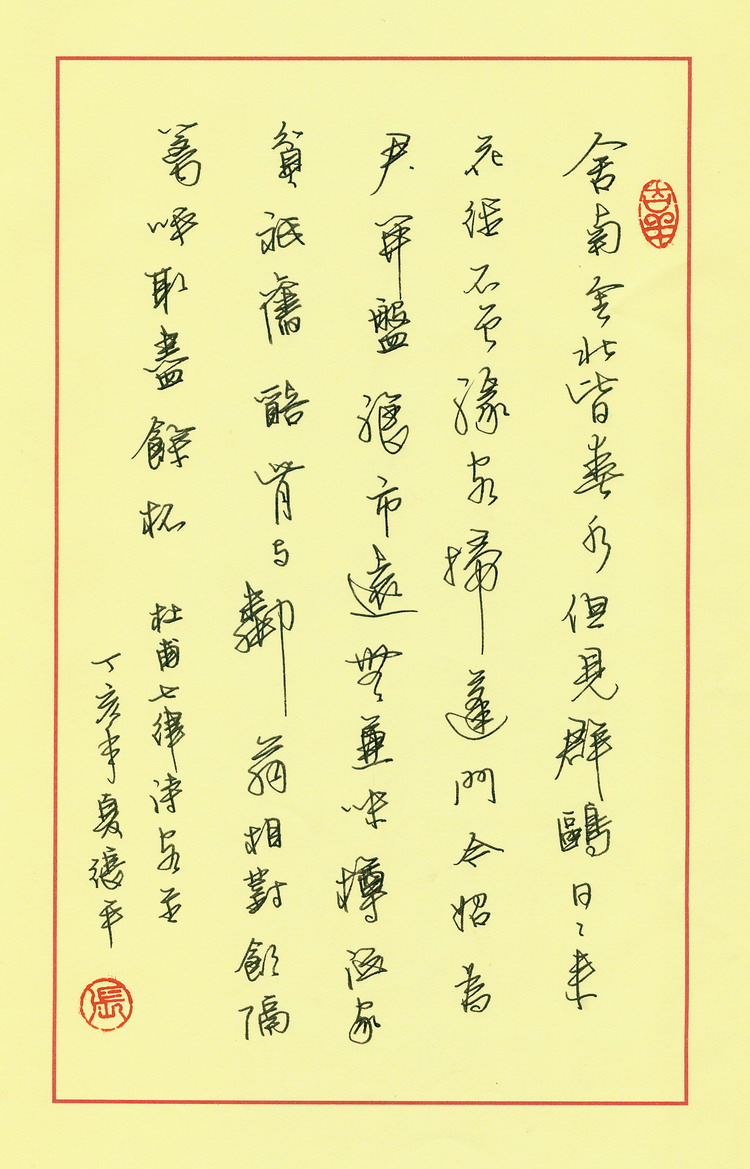 舍南舍北皆春水但見群鷗日〻來
花徑不曾緣客掃蓬門今始為
君開盤飧市遠無兼味樽酒家
貧祇舊醅肯与鄰翁相對飲隔
篱呼取盡餘杯
杜甫七律詩客至
丁亥年夏張平
張